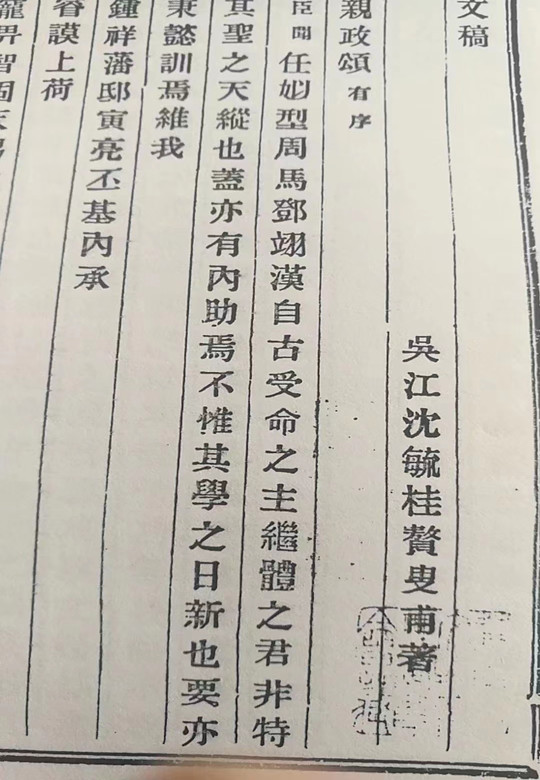 文稿
吳江沈毓桂贅叟甫著
親政頌有序
臣聞任姒型周馬鄧翊漢自古受命之主繼體之君非特
其聖之天縱也蓋亦有內助焉不惟其學之日新也要亦
秉懿訓焉維我
鍾祥藩邸寅亮丕基內承
睿謨上荷